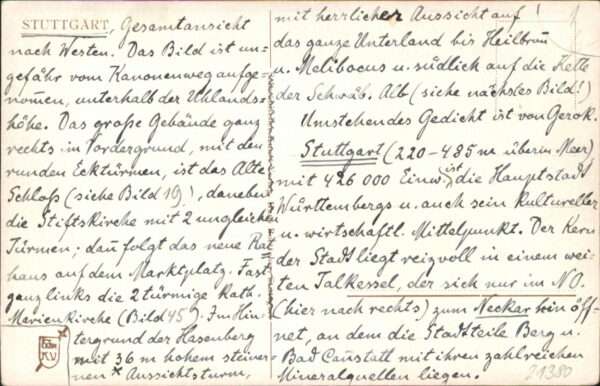 STUTTGART, Gesamtansicht
nach Westen. Das Bild ist un-
gefähr vom Kanonenweg aufge-
nommen, unterhalb der Uhlands-
höhe. Das große Gebäude ganz
rechts im Vordergrund, mit den
runden Ecktürmen, ist das Alte
Schloß (siehe Bild 19), daneben
die Stiftskirche mit 2 ungleichen
Türmen; dan̄ folgt das neue Rat-
haus auf dem Marktplatz. Fast
ganz links die 2 türmige Kath.
Marienkirche (Bild 45). Im Hin-
tergrund der Hasenberg
mit 36 m hohem steiner-
nen * Aussichtsturm,
mit herrlicher Aussicht auf !
das ganze Unterland bis Heilbron̄
u. Melibocus u. südlich auf die Kette
der Schwäb. Alb (siehe nächstes Bild!)
Umstehendes Gedicht ist von Gerok.
Stuttgart (220-485 m überm Meer)
mit 426 000 Einw. ist die Hauptstadt
Württembergs u. auch sein kultureller
u. wirtschaftl. Mittelpunkt. Der Kern
der Stadt liegt reizvoll in einem wei-
ten Talkessel, der sich nur im NO.
(hier nach rechts) zum Neckar hin öff-
net, an dem die Stadtteile Berg u.
Bad Can̄statt mit ihren zahlreichen
Mineralquellen liegen.
21380